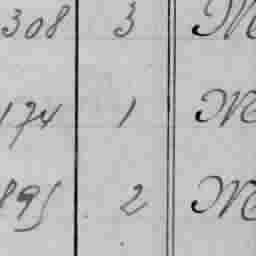 308 3 M
174 1 M
895 2 M